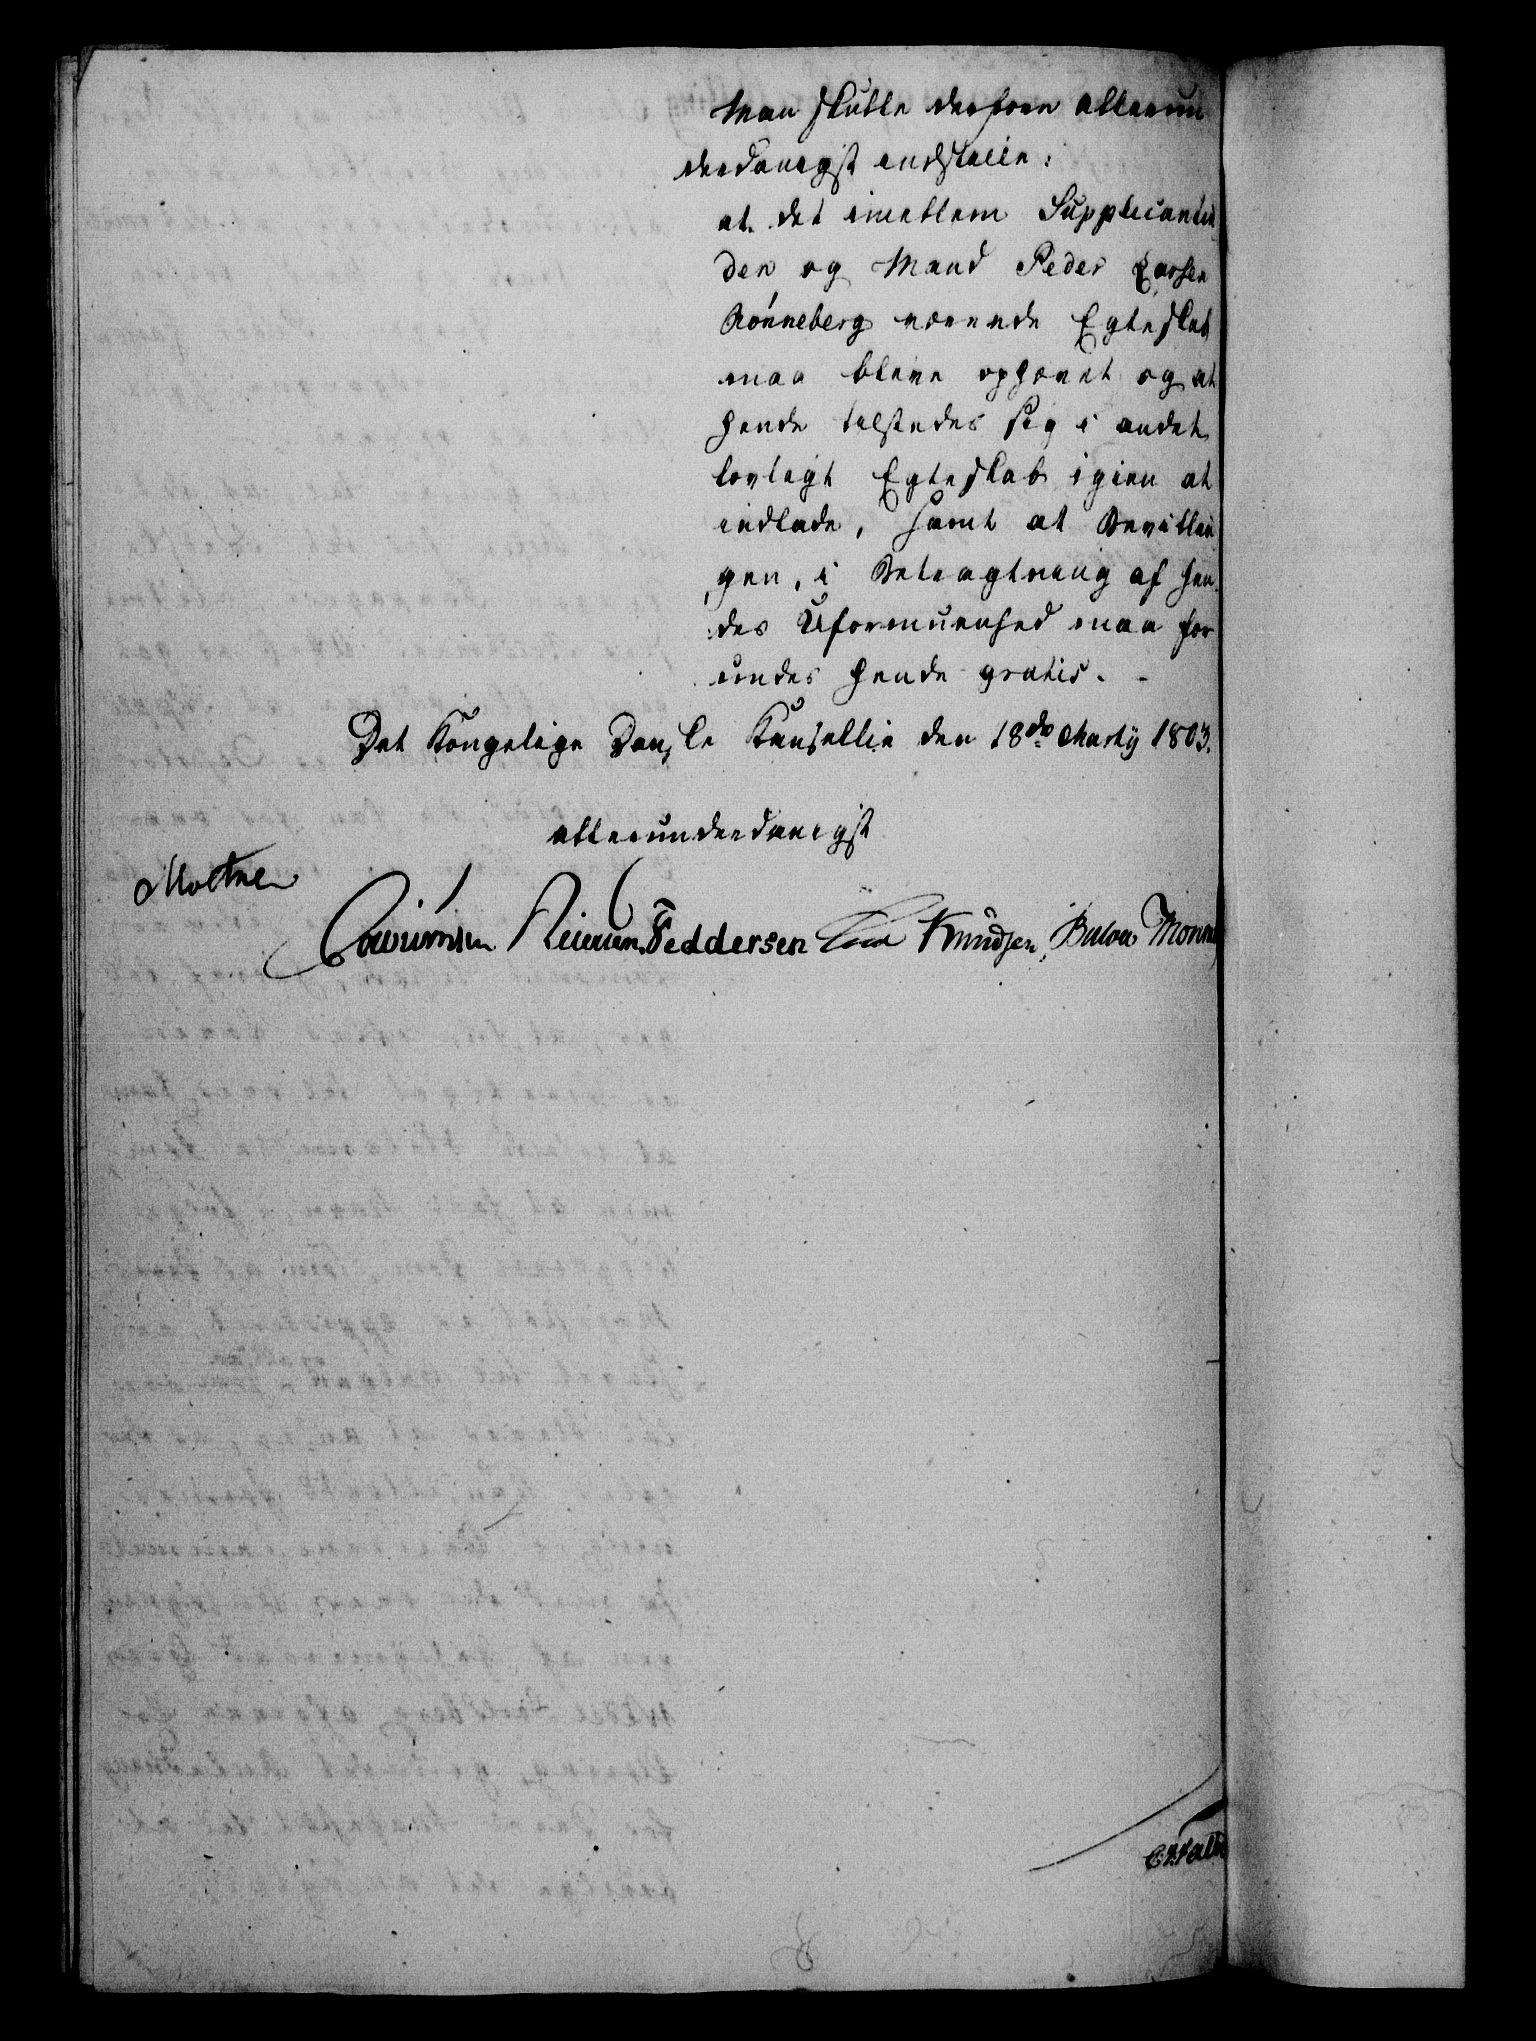 Man skulle derfore allerun
derdanigst indstille:
at det imellem Supplicantin
den og Mand Peder Larsen
Rønneberg værende Egteskab
maa blive ophævet og at
hende tilstedes sig i andet
lovligt Egteskab igien at
indlade, samt at Bevillin
gen, i Betragtning af hen
des Uformuenhed maa for
undes hende gratis.
Det Kongelige Danske Kansellie den 18de Martij 1803.
allerunderdanigst
Moltke
Feddersen Knudsen, Bülow Monrad